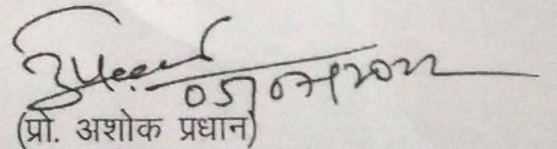 05/07/2022
(प्रो. अशोक प्रधान)